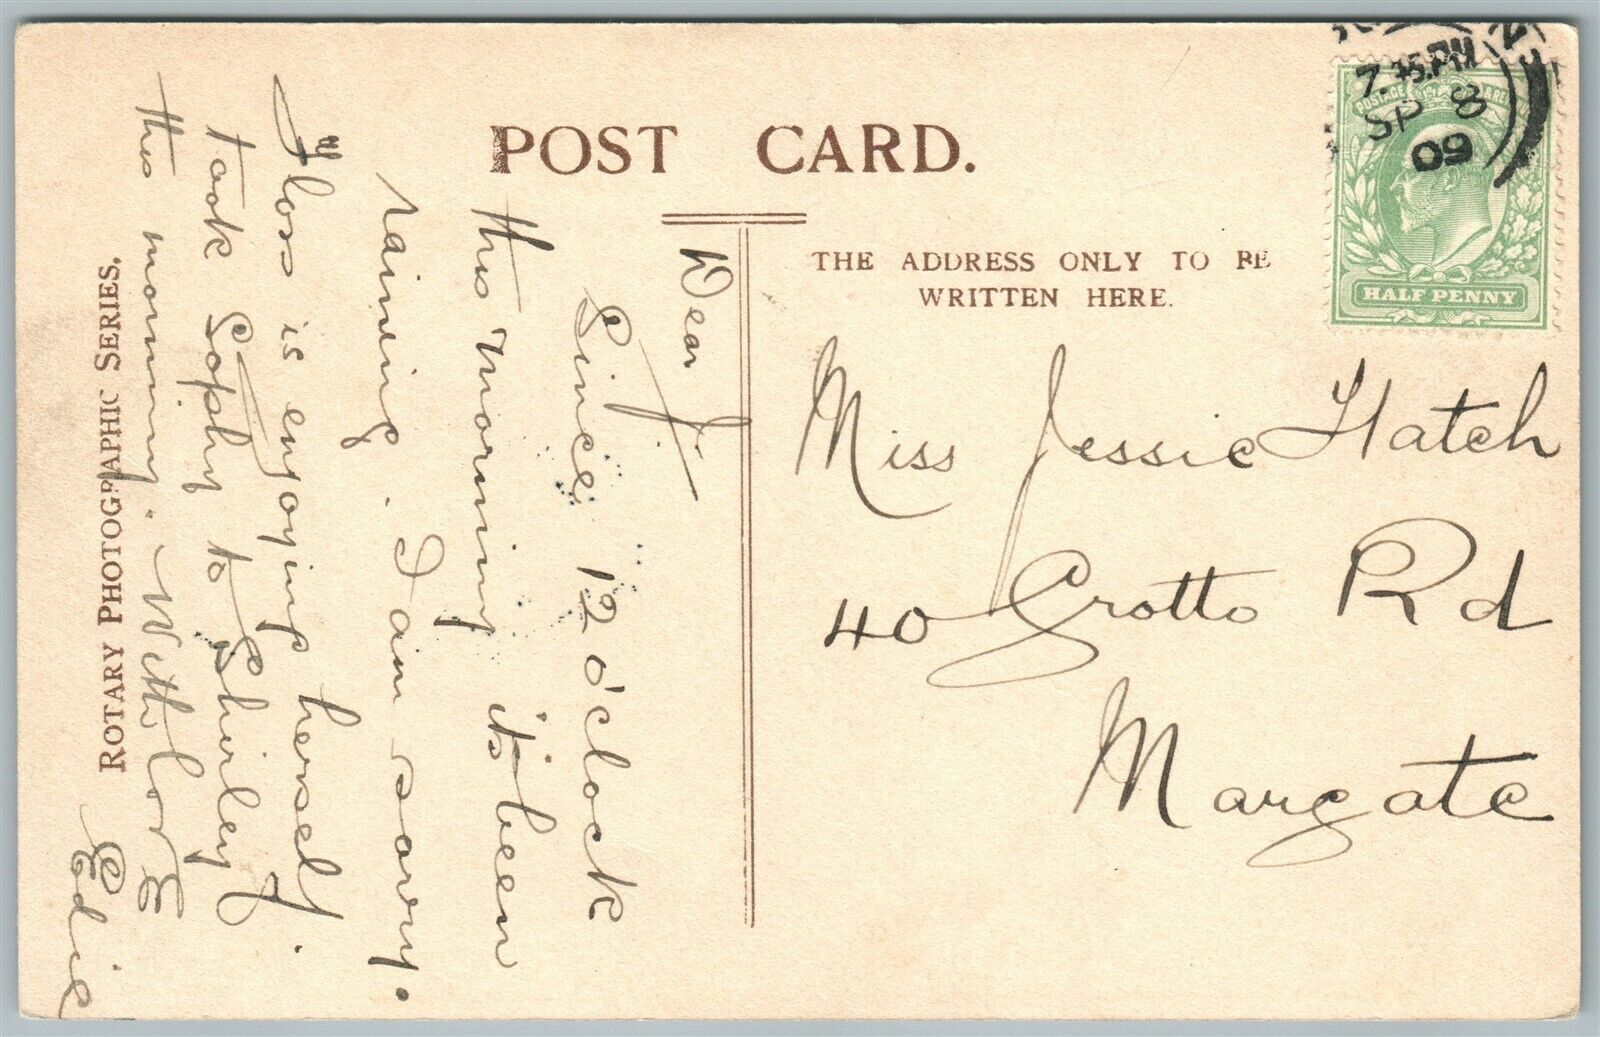 POST CARD.
THE ADDRESS ONLY TO BE
WRITTEN HERE.
7.45.PM
SP 8
09
POSTAGE
HALF PENNY
Miss Jessie Hatch
40 Grotto Rd
Margate
Dear J.
Since 12 o'clock
this morning it's been
raining. I am sorry.
"Floss is enjoying herself.
took Sophy to Shirley
this morning. With love
Edie
ROTARY PHOTOGRAPHIC SERIES.